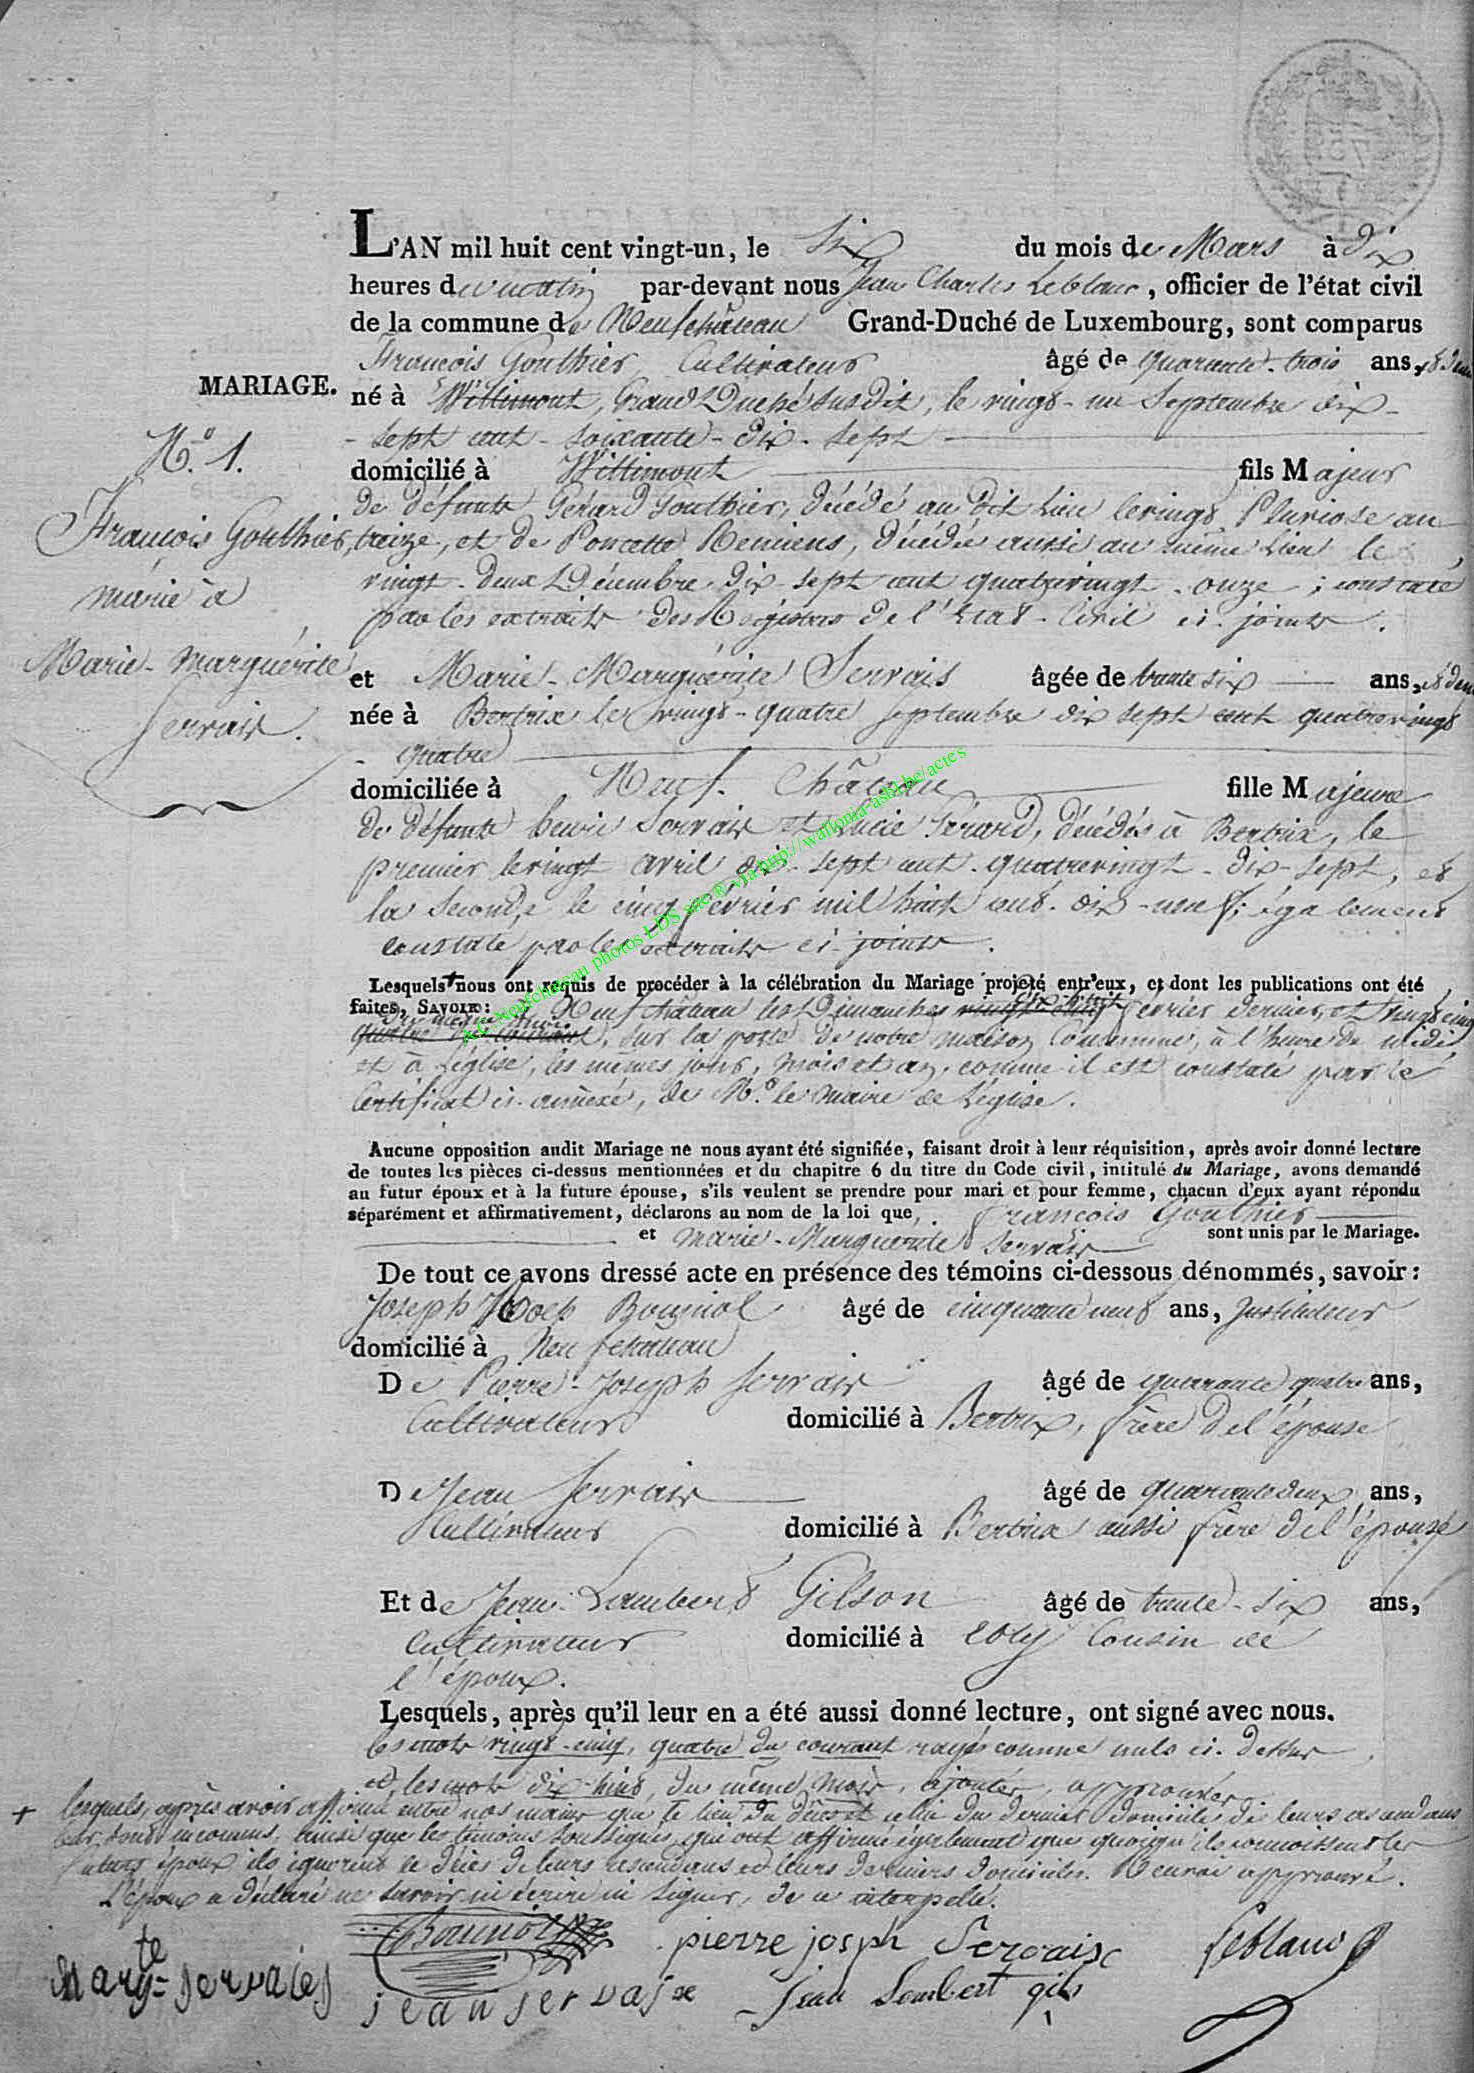 L'AN mil huit cent vingt-un, le Six du mois de Mars à dix
heures du matin par-devant nous Jean Charles Leblanc, officier de l'état civil
de la commune de Neufchâteau Grand-Duché de Luxembourg, sont comparus
François Gouthier, Cultivateur âgé de quarante-trois ans, et demi
MARIAGE.
né à Wittimont, Grand Duché susdit, le vingt-un Septembre dix-
sept cent-soixante-dix-sept
N.o 1.
domicilié à Wittimont fils Majeur
de défunts Gérard Gouthier, décédé au dit Lieu le vingt Pluviose an
François Gouthier,
treize, et de Poncette Remiens, décédée aussi au même Lieu le
marié à
vingt-deux Décembre dix-sept cent quatrevingt-onze; constaté
par les extraits des Registres de l'Etat-Civil ci-joints.
Marie-Marguérite
Servais.
et Marie-Marguérite Servais âgée de trente six ans, et demi
née à Bertrix le vingt-quatre septembre dix sept cent quatrevingt
quatre
domiciliée à Neuf-Château fille Majeure
de défunts henri Servais et Lucie Gérard, décédés à Bertrix, le
premier le vingt avril dix-sept cent-quatrevingt-dix-sept, et
la seconde le cinq février mil huit cent-dix-neuf; également
constaté par les extraits ci-joints.
Lesquels + nous ont requis de procéder à la célébration du Mariage projeté entr'eux, et dont les publications ont été
faites, SAVOIR: à Neufchâteau les Dimanches vingt-cinq dix-huit février dernier, et vingt cinq
quatre du courant du même mois, sur la porte de notre maison Commune, à l'heure de midi
et à Léglise, les mêmes jours, mois et an, comme il est constaté par le
Certificat ci-annexé, de M.r le Maire de Léglise.
Aucune opposition audit Mariage ne nous ayant été signifiée, faisant droit à leur réquisition, après avoir donné lecture
de toutes les pièces ci-dessus mentionnées et du chapitre 6 du titre du Code civil, intitulé du Mariage, avons demandé
au futur époux et à la future épouse, s'ils veulent se prendre pour mari et pour femme, chacun d'eux ayant répondu
séparément et affirmativement, déclarons au nom de la loi que, François Gouthier
et Marie-Marguérite Servais sont unis par le Mariage.
De tout ce avons dressé acte en présence des témoins ci-dessous dénommés, savoir:
Joseph Roch Bourniol âgé de cinquante neuf ans, Instituteur
domicilié à Neufchateau
De Pierre-Joseph Servais âgé de quarante quatre ans,
Cultivateur domicilié à Bertrix, frère de l'épouse
De Jean Servais âgé de quarante deux ans,
Cultivateur domicilié à Bertrix aussi frère de l'épouse
Et de Jean-Lambert Gilson âgé de trente-six ans,
Cultivateur domicilié à Cousin de
l'époux.
Lesquels, après qu'il leur en a été aussi donné lecture, ont signé avec nous.
les mots vingt-cinq, quatre du courant rayés comme nuls ci-dessus
et les mots dix-huit, du même mois, ajoutés, approuvés
+ lesquels, après avoir affirmé entre nos mains que le lieu du décès et celui du dernier domicile de leurs ascendans
leur sont inconnus, ainsi que les témoins soussignés, qui ont affirmé également que quoiqu'ils connoissent les
futurs époux ils ignorent le décès de leurs ascendans et leurs derniers domiciles. Renvoi approuvé.
L'époux a déclaré ne savoir ni écrire ni signer, de ce interpellé.
Bourniol pierre josph Servais Leblanc
Marg.te Servaies jean servais Jean Lambert gils
A.C. Neufchateau photos LDS site ® via http://wallonia-asbl.be/actes